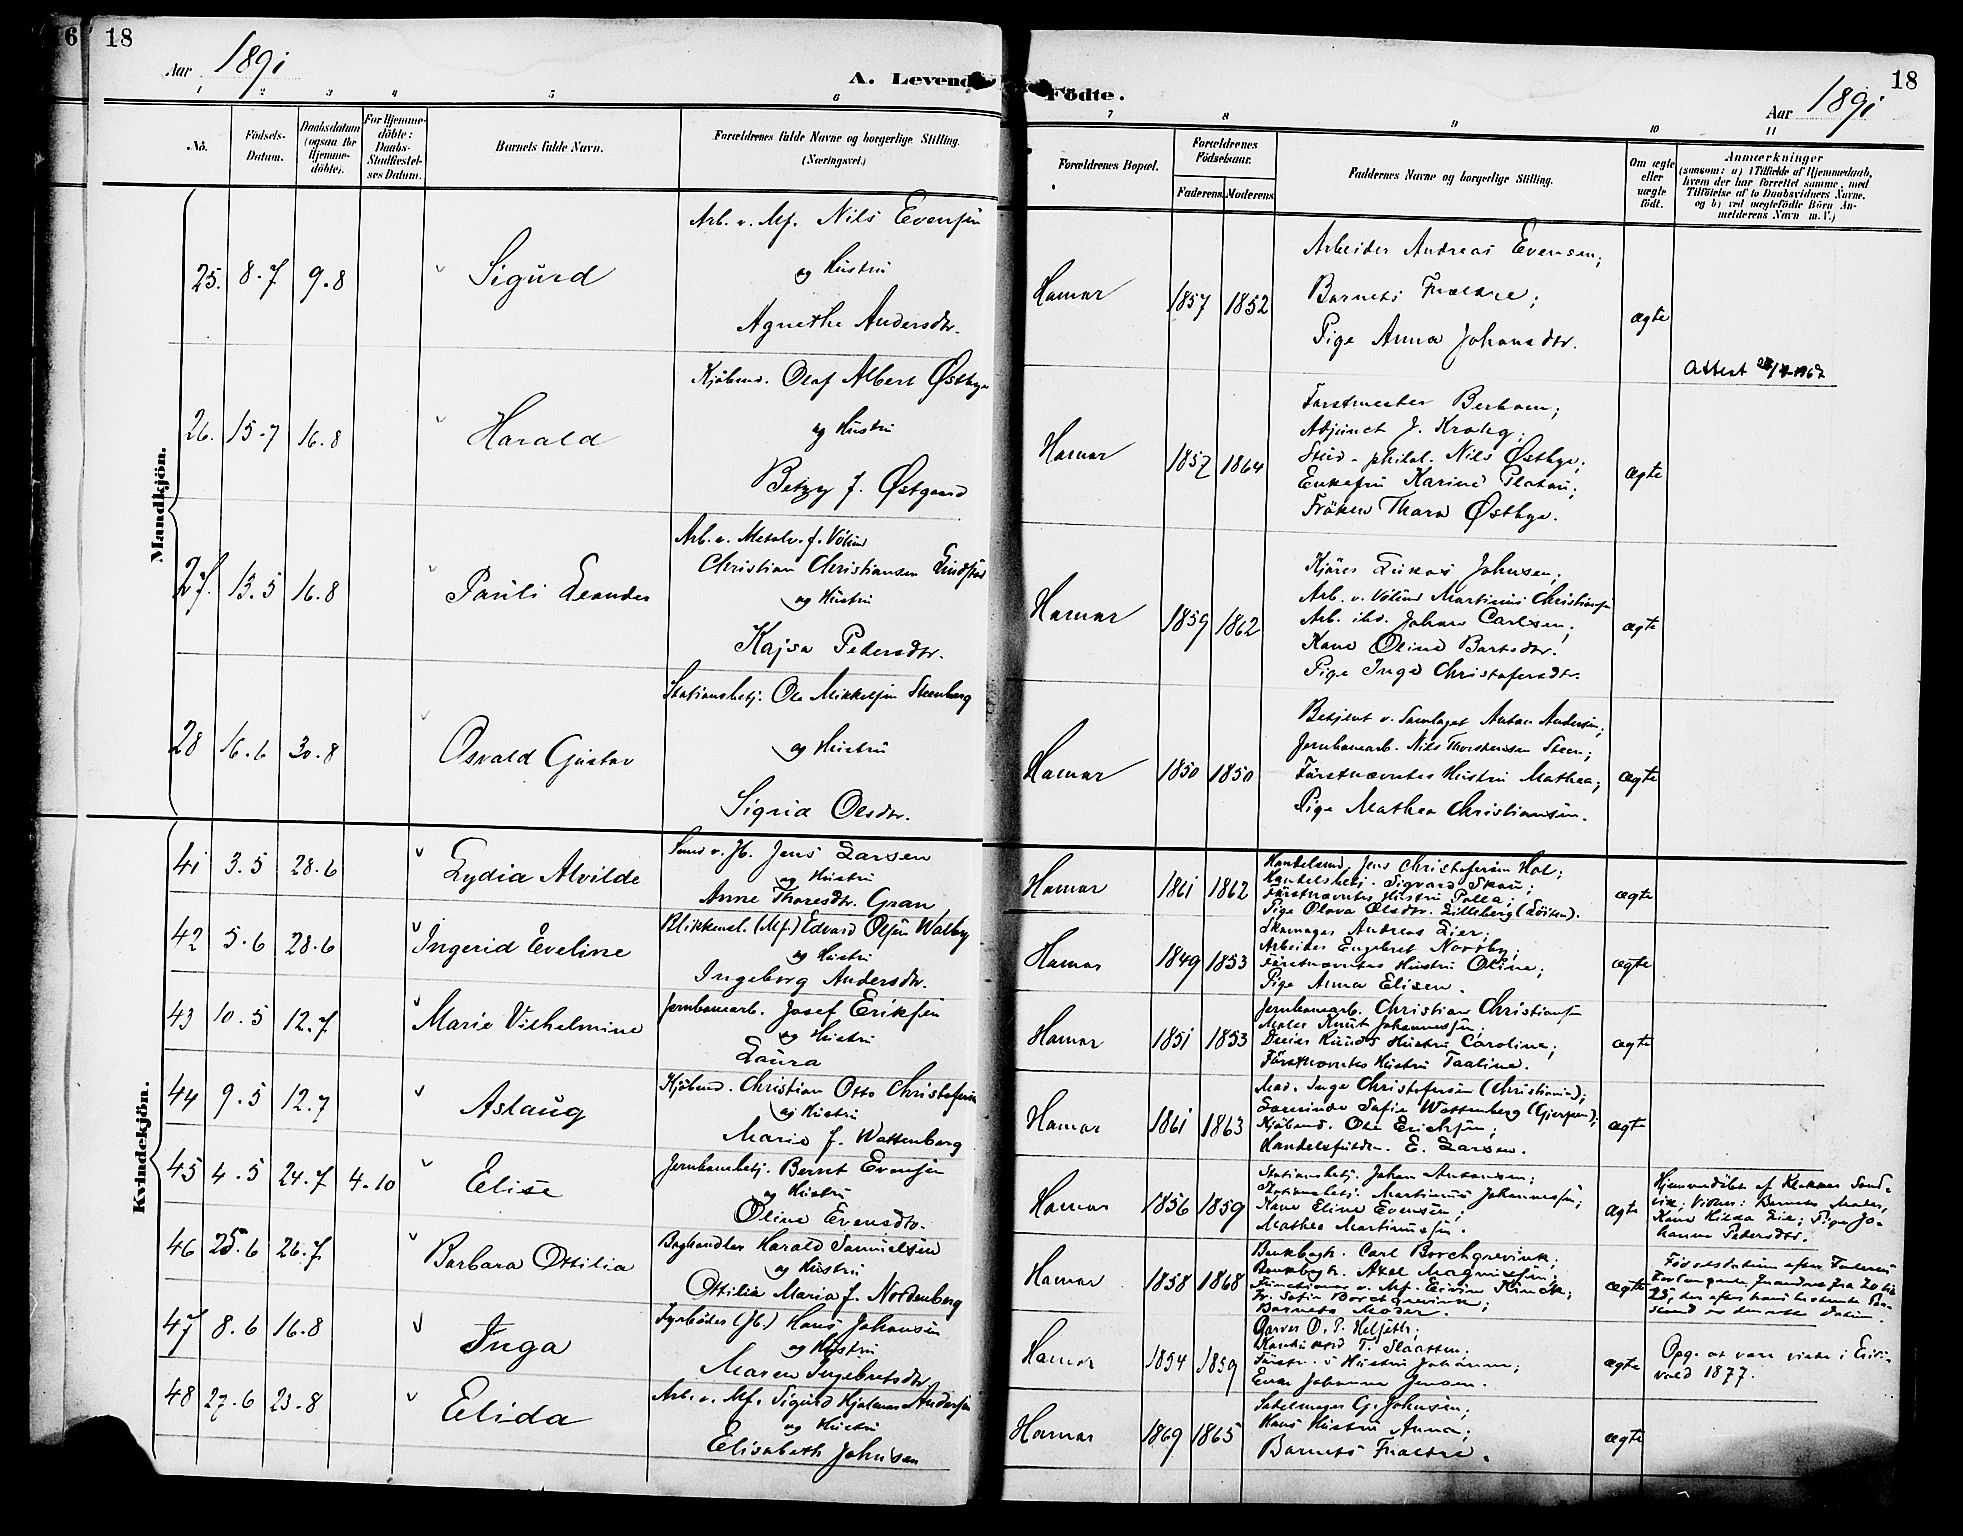 18
Aar 1891
A. Levende
Födte.
Aar 1891
18
1 2 3 4 5 6 7 8 9 10 11
No.
Födsels-Datum.
Daabsdatum (ogsaa for Hjemme-döbte).
For Hjemme-döbte: Daabs-Stadfæstel-ses Datum.
Barnets fulde Navn.
Forældrenes fulde Navne og borgerlige Stilling. (Næringsvei.)
Forældrenes Bopæl.
Forældrenes Födselsaar.
Faderens. Moderens.
Faddernes Navne og borgerlige Stilling.
Om ægte eller uægte födt.
Anmærkninger
(saasom: a) i Tilfælde af Hjemmedaab,
hvem der har forrettet samme, med
Tilföielse af to Daabsvidners Navne.
og b) ved uægtefödte Börn An-
melderens Navn m. V.)
Mandkjön.
25. 8.7 9.8 Sigurd
Arb. v. Mf. Nils Evensen
og Hustru
Agnethe Andersdtr.
Hamar 1857 1852
Arbeider Andreas Evensen;
Barnets Forældre;
Pige Anna Johansdtr.
ægte
Attest
26. 15.7 16.8 Harald
Kjöbmd. Olaf Albert Østbye
og Hustru
Betzy f. Østgaard
Hamar 1857 1864
Forstmester
Adjunct J. Krohg;
Stud. philol. Nils Østbye;
Enkefru Karine Platou;
Fröken Thora Østbye.
ægte
27. 13.5 16.8 Pauli Leander
Arb. v. Metalv. f. Völund
Christian Christiansen Lindstad
og Hustru
Kajsa Pedersdtr.
Hamar 1859 1862
Kjörer Lukas Johnsen;
Arb. v. Völund Martinius Christiansen
Arb. ibd. Johan Carlsen;
Kone Oline Bartsdtr.
Pige Inga Christofersdtr.
ægte
28 16.6 30.8 Osvald Gustav
Stationsbetj. Ole Mikkelsen Steenberg
og Hustru
Sigrid Olsdtr.
Hamar 1850 1850
Betjent v. Samlaget Anton Andersen;
Jernbanearb. Nils Thorstensen Steen;
Förstnævntes Hustru Mathea;
Pige Mathea Christiansen.
ægte
Kvindekjön.
41 3.5 28.6 Lydia Alvilde
Smed v. Jb. Jens Larsen
og Hustru
Anne Thoresdtr. Gran
Hamar 1861 1862
Handelsmd. Jens Christofersen Hol;
Handelsbetj. Sigvard Skou;
Förstnævntes Hustru Polla;
Pige Olava Olsdtr. Lilleberg (Löiten).
ægte
42 5.6 28.6 Ingerid Eveline
Blikkensl. (Mf.) Edvard Olsen Walby
og Hustru
Ingeborg Andersdtr.
Hamar 1849 1853
Skomager Andreas Lier;
Arbeider Engebret Nordby;
Förstnævntes Hustru Oline;
Pige Anna Elisen.
ægte
43 10.5 12.7 Marie Vilhelmine
Jernbanearb. Josef Eriksen
og Hustru
Laura
Hamar 1851 1853
Jernbanearb. Christian Christiansen
Maler Knut Johannessen;
Hustru Caroline;
Förstnævntes Hustru Taaline.
ægte
44 9.5 12.7 Aslaug
Kjöbmd. Christian Otto Christofersen
og Hustru
Marie f. Wattenberg
Hamar 1861 1863
Mad. Inga Christofersen (Christiania);
Lærerinde Sofie Wattenberg (Gjerpen);
Kjöbmd. Ole Erichsen;
Handelsfuldm. E. Larsen.
ægte
45 4.5 24.7 4.10 Elise
Jernbanebetj. Bernt Evensen
og Hustru
Oline Evensdtr.
Hamar 1856 1859
Stationsbetj. Johan Antonsen;
Stationsbetj. Martinus Johannessen;
Kone Eline Evensen;
Mathea Martinussen.
ægte
Hjemmedöbt af Klokker Sand-
vik; Vidner: Barnets Moder,
Kone Hilda Lie; Pige Jo-
hanne Pedersdtr.
46 25.6 26.7 Barbara Ottilia
Boghandler Harald Samuelsen
og Hustru
Ottilia Maria f. Nordenberg
Hamar 1858 1868
Bankbogh. Carl Borchgrevink;
Bankbogh. Axel Magnussen;
Functionær v. Mf. Eivin Kinck;
Fr. Sofie Borchgrevink;
Barnets Moder.
ægte
Födselsdatum efter Faderens
Forlangende forandret fra 20 til
25, da efter hans bestemte Paa-
stand er den rette Datum.
47 8.6 16.8 Inga
Fyrböder (Jb.) Hans Johansen
og Hustru
Maren Ingebretsdtr.
Hamar 1854 1859
Garver O. P. Helseth;
Konduktörd T. Slaatten;
Förstn.s Hustru Johanne;
Enke Johanne Jensen.
ægte
Opg. at være viede i Eids-
vold 1877.
48 27.6 23.8 Elida
Arb. v. Mf. Sigurd Hjalmar Andersen
og Hustru
Elisabeth Johnsen
Hamar 1869 1865
Sadelmager G. Johnsen;
Hans Hustru Anna;
Barnets Forældre.
ægte